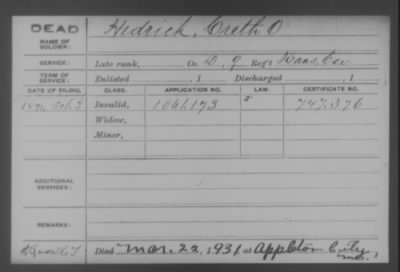 DEAD
NAME OF
SOLDIER:
Hedrick, Creth O
SERVICE:
Late rank, Co. D, 9 Reg't Kans. Cav
TERM OF
SERVICE:
Enlisted , 1 Discharged , 1
DATE OF FILING. CLASS. APPLICATION NO. LAW. CERTIFICATE NO.
Oct. 3 Invalid, 1061,193 747,376
Widow,
Minor,
ADDITIONAL
SERVICES:
REMARKS:
Died Mar. 22, 1931, at Appleton City
Mo.